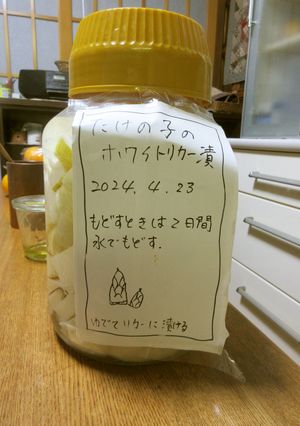 たけの子の
ホワイトリカー漬
2024.4.23
もどすときは2日間
水でもどす.
ゆでてリカーに漬ける